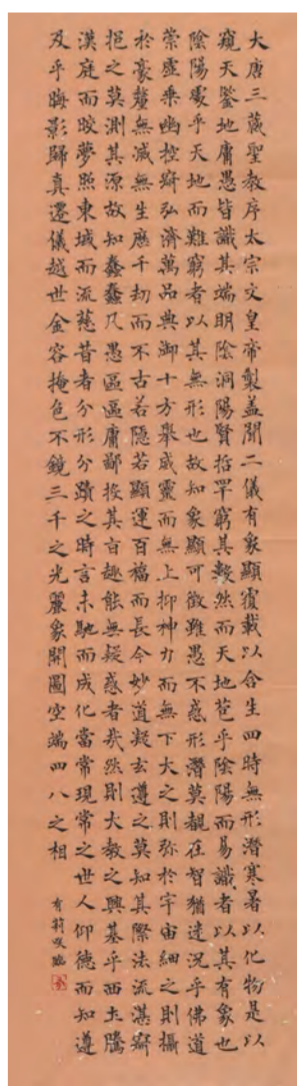 大唐三藏聖教序太宗文皇帝製蓋聞二儀有象顯覆載以含生四時無形潛寒暑以化物是以
窺天鑒地庸愚皆識其端明陰洞陽賢哲罕窮其數然而天地苞乎陰陽而易識者以其有象也
陰陽處乎天地而難窮者以其無形也故知象顯可徵雖愚不惑形潛莫覩在智猶迷況乎佛道
崇虛乘幽控寂弘濟萬品典御十方舉威靈而無上抑神力而無下大之則弥於宇宙細之則攝
於豪釐無滅無生歷千劫而不古若隱若顯運百福而長今妙道凝玄遵之莫知其際法流湛寂
挹之莫測其源故知蠢蠢凡愚區區庸鄙投其旨趣能無疑惑者哉然則大教之興基乎西土騰
漢庭而皎夢照東域而流慈昔者分形分蹟之時言未馳而成化當常現常之世人仰德而知遵
及乎晦影歸真遷儀越世金容掩色不鏡三千之光麗象開圖空端四八之相